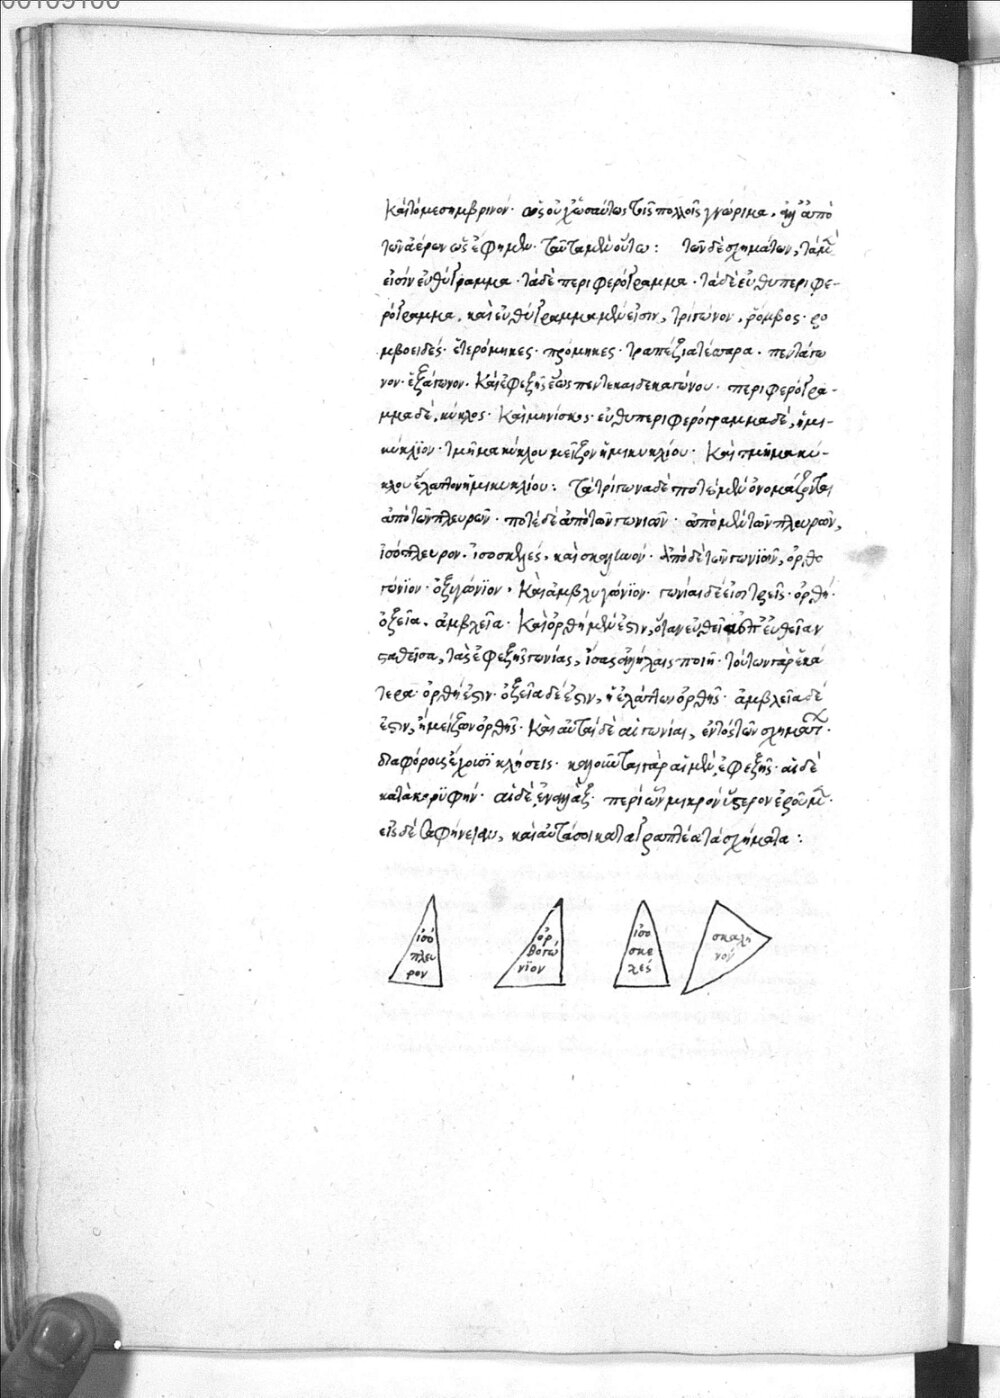 00109100
καὶ τὸ μεσημβρινόν· ὡς οὐχ ὡσαύτως τοῖς πολλοῖς γνώριμα, ἀλλ' ἀπὸ
τῶν ἀέρων ὡς ἔφημεν· ταῦτα μὲν οὕτω: τῶν δὲ σχημάτων, τὰ μέν
εἰσιν εὐθύγραμμα· τὰ δὲ περιφερόγραμμα· τὰ δὲ εὐθυπεριφε-
ρόγραμμα, καὶ εὐθύγραμμα μὲν εἰσιν, τρίγωνον, ῥόμβος· ῥο
μβοειδές· ἑτερόμηκες· πρόμηκες· τραπέζια τέσσαρα· πεντάγω
νον· ἑξάγωνον· καὶ ἐφεξῆς ἕως πεντεκαιδεκαγώνου· περιφερόγρα-
μμα δέ, κύκλος· καὶ μηνίσκος· εὐθυπεριφερόγραμμα δέ, ἡμι-
κύκλϊον· τμῆμα κύκλου μεῖζον ἡμικυκλίου· καὶ τμῆμα κύ-
κλου ἔλαττον ἡμικυκλίου: τὰ τρίγωνα δὲ ποτὲ μὲν ὀνομάζονται
ἀπὸ τῶν πλευρῶν· ποτὲ δὲ ἀπὸ τῶν γωνιῶν· ἀπὸ μὲν τῶν πλευρῶν,
ἰσόπλευρον· ἰσοσκελές· καὶ σκαληνόν· ἀπὸ δὲ τῶν γωνϊῶν, ὀρθο
γώνϊον· ὀξυγώνϊον· καὶ ἀμβλυγώνϊον· γωνίαι δέ εἰσι τρεῖς· ὀρθή·
ὀξεῖα· ἀμβλεῖα· καὶ ὀρθὴ μέν ἐστιν, ὅταν εὐθεῖα ἐπ' εὐθεῖαν
σταθεῖσα, τὰς ἐφεξῆς γωνίας, ἴσας ἀλλήλαις ποιῇ· τούτων γὰρ ἑκα
τερα· ὀρθή ἐστιν· ὀξεῖα δέ ἐστιν, ἡ ἐλάττων ὀρθῆς· ἀμβλεῖα δέ
ἐστιν, ἡ μείζων ὀρθῆς· καὶ αὗται δὲ αἱ γωνίαι, ἐντὸς τῶν σχημάτων·
διαφόροις ἔχουσϊ κλήσεις· καλοῦνται γὰρ αἱ μὲν, ἐφεξῆς· αἱ δὲ
κατὰ κορϋφήν· αἱ δὲ, ἐναλλάξ· περὶ ὧν μικρὸν ὕστερον ἐροῦμεν·
εἰς δὲ σαφήνειαν, καὶ αὐτά σοι καταγραπτέα τὰ σχήματα:
ἰσό
πλευ
ρον
ὀρ
θογώ
νϊον
ἰσο
σκε
λές
σκαλη
νόν